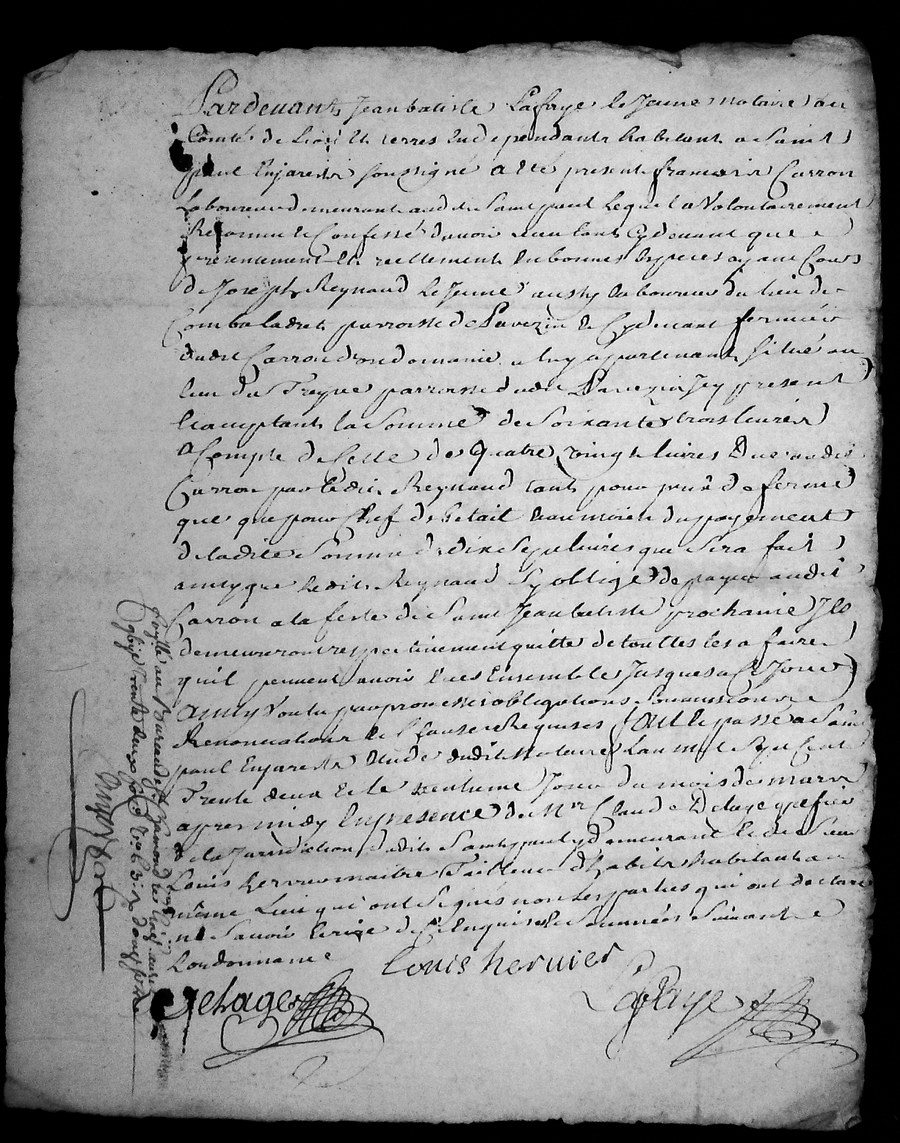 Pardevant Jean batiste Lafaye le Jeune notaire au
Comté de Lion Et terres Independants habitant a Saint
paul Enjarest soussigné a été present francois Carron
Laboureur demeurant aud. St. Saint paul Lequel a Volontairement
Reconnu & Confessé davoir eu tant Cydevant que
presentement Et reellement En bonnes Especes ayant Cours
de Joseph Reynaud Le Jeune aussy Laboureur du lieu de
Combaladret parroisse de Pavezin & Cydevant fermier
dudit Carron de son domaine a luy apartenant situé au
lieu du Treyve parroisse dudit Pavezin Icy present
Lacceptant La Somme de Soixante & trois livres
a Compte de Celle de Quatre vingt livres Due audit
Carron par ledit Reynaud tant pour prix de ferme
que pour Chef de betail & au moien du payement
de ladite Somme de dix sept livres que Sera fait
ainsy que Ledit Reynaud Sy oblige de payer audit
Carron a la feste de Saint Jean batiste prochaine Ils
demeureront respectivement quitte de touttes les affaire
quil peuvent avoir Eües Ensemble Jusques a Ce Jour
ainsy Voulu par promesses obligations Soumissions
Renonciations & Clauses Requises fait & passé a Saint
paul Enjarest Etude dudit Notaire Lan mil Sept Cent
Trente deux & le Jour du mois de mars
apres midy En presence de Mr Claude Delage greffier
de la Jurisdiction dudit Saint paul y demeurant & de Sieur
Louis hervier maitre Tailleur d'habits habitant au
même Lieu qui ont Signés non Les parties qui ont declaré
ne Savoir Ecrire de Ce Enquises & Sommées Suivant
Lordonnance
Louis hervier
Delage
Lafaye
Controllé au Bureau de St Chamond
trente deux